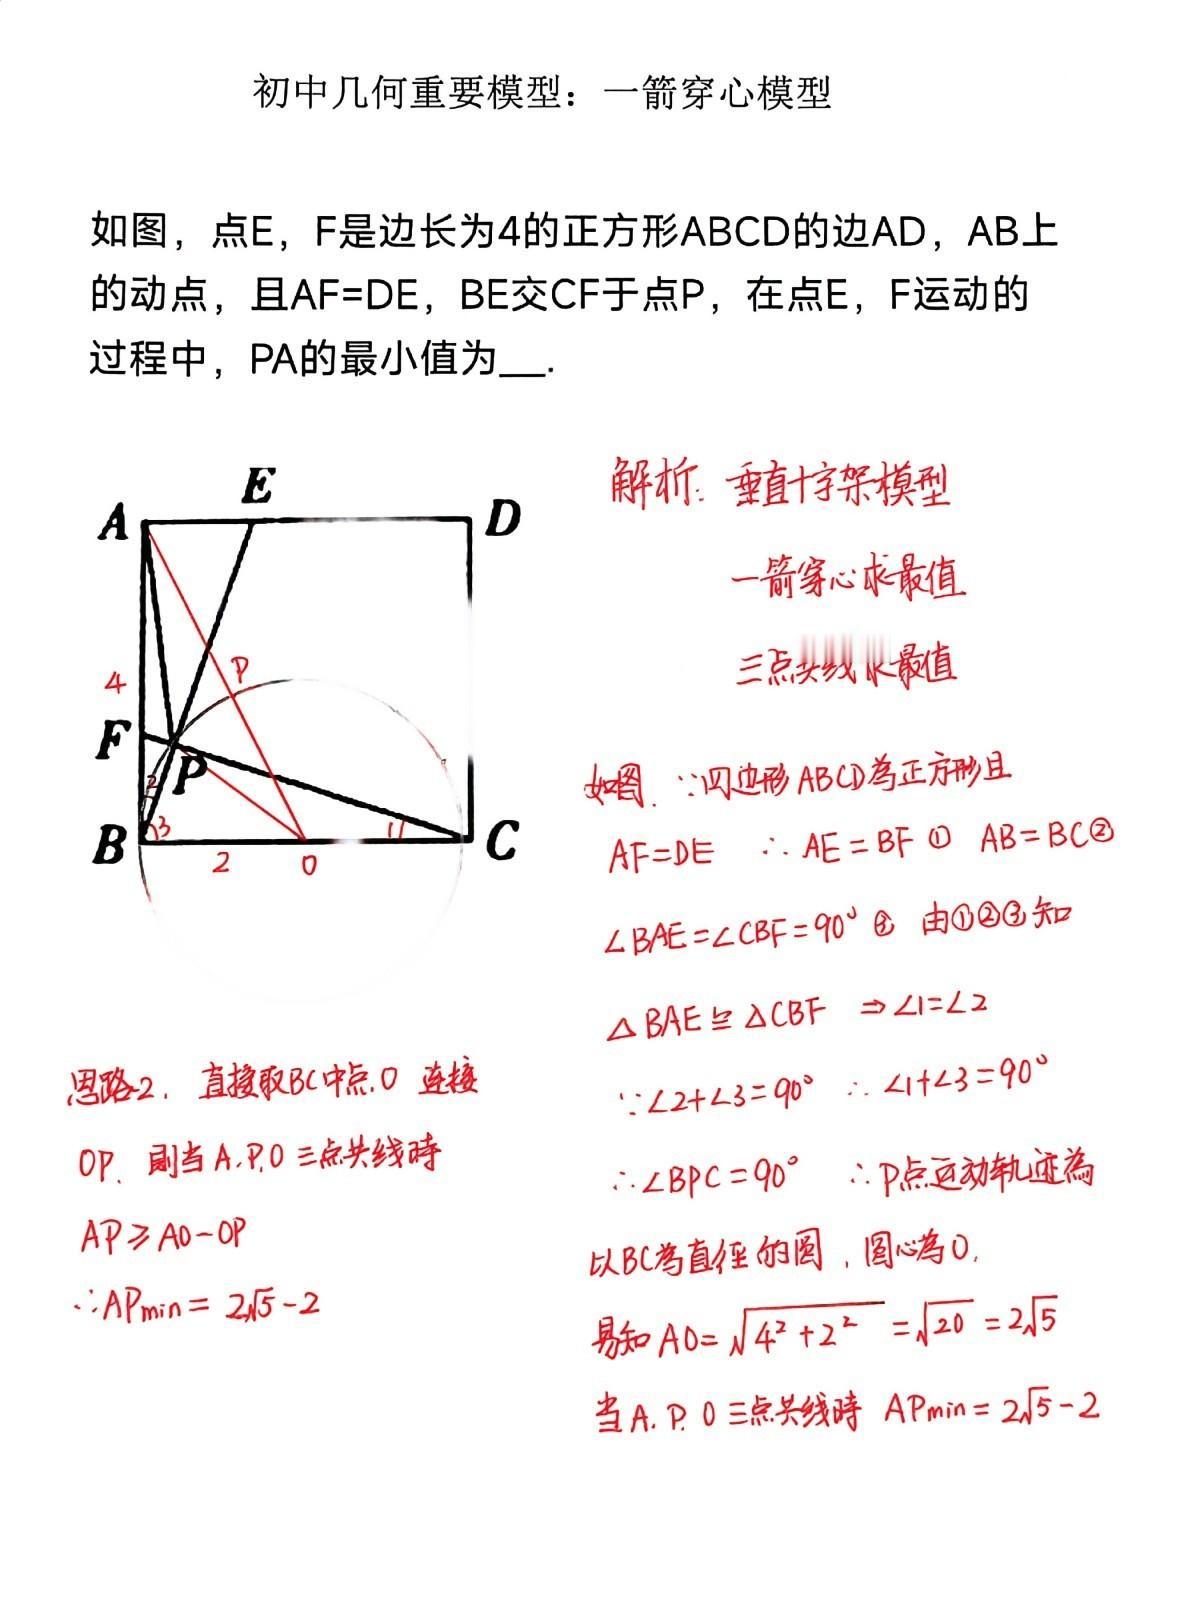 初中几何重要模型：一箭穿心模型
如图，点E，F是边长为4的正方形ABCD的边AD，AB上
的动点，且AF=DE，BE交CF于点P，在点E，F运动的
过程中，PA的最小值为__.
A
E
D
P
4
F
P
2
B
3
1
C
2
O
解析：垂直十字架模型
一箭穿心求最值
三点共线求最值
如图，∵四边形ABCD為正方形且
AF=DE ∴AE=BF① AB=BC②
∠BAE=∠CBF=90° ③ 由①②③知
△BAE≌△CBF ⇒∠1=∠2
∵∠2+∠3=90° ∴∠1+∠3=90°
∴∠BPC=90° ∴P点运动轨迹為
以BC為直径的圆，圆心為O，
易知AO=√4²+2² =√20 =2√5
当A.P.O三点共线時 APmin=2√5-2
思路2. 直接取BC中点.O 连接
OP. 則当A.P.O三点共线時
AP≥AO-OP
∴APmin= 2√5-2